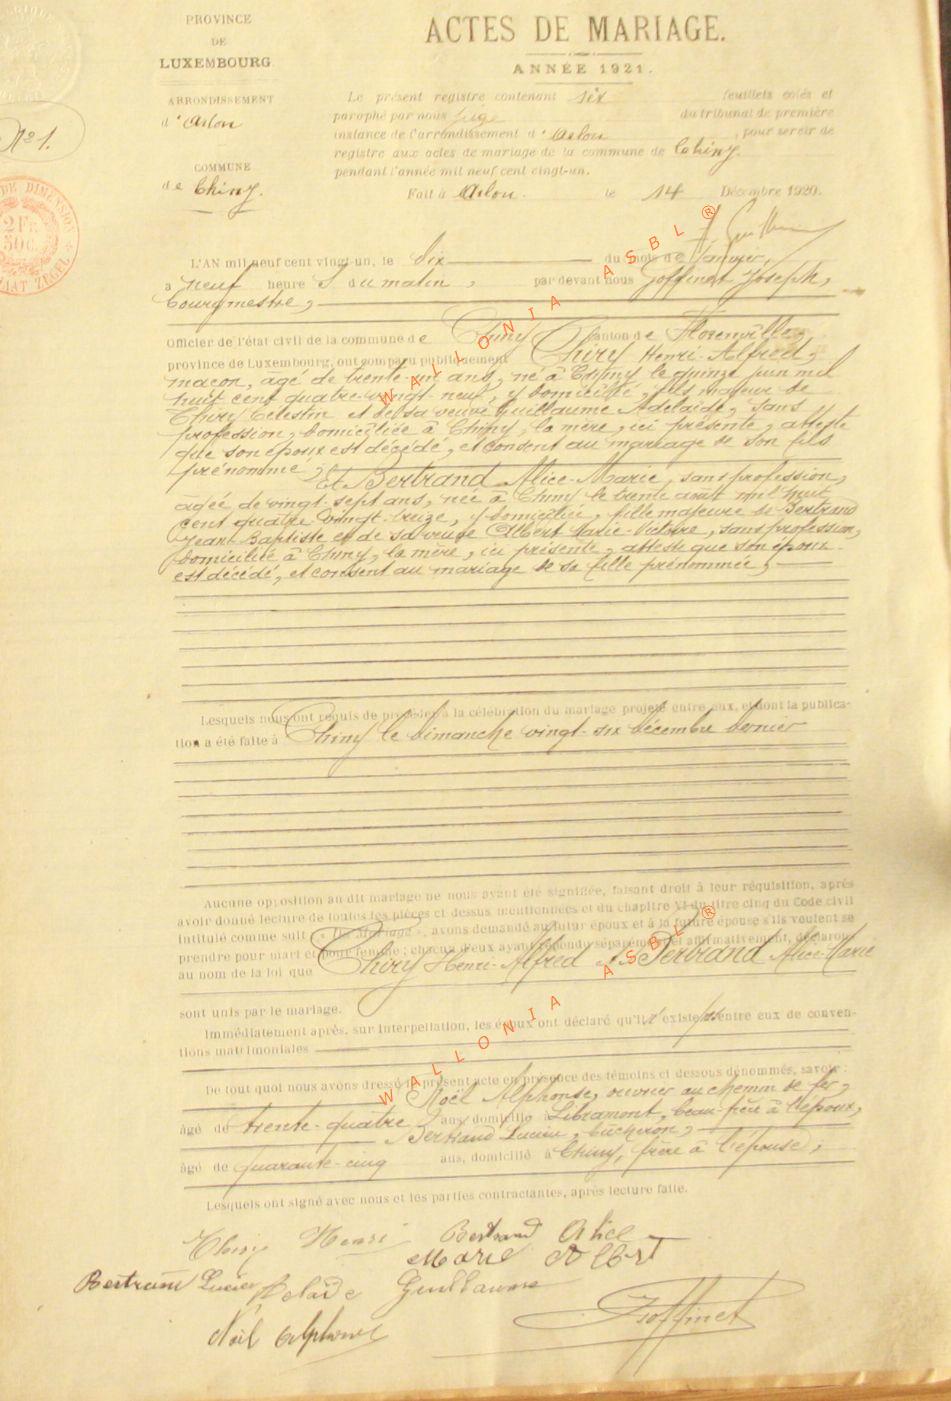 PROVINCE
DE
LUXEMBOURG
ARRONDISSEMENT
d'Arlon
COMMUNE
de Chiny.
N° 1.
DE DIMENSION
2 FR
50 C.
ZEGEL
ACTES DE MARIAGE.
ANNÉE 1921.
Le présent registre contenant six feuillets cotés et
paraphé par nous juge du tribunal de première
instance de l'arrondissement d'Arlon, pour servir de
registre aux actes de mariage de la commune de Chiny.
pendant l'année mil neuf cent vingt-un.
Fait à Arlon. le 14 Décembre 1920.
L'AN mil neuf cent vingt-un, le dix du mois de Janvier,
à neuf heures du matin, par devant nous Goffinet Joseph,
bourgmestre,
Officier de l'état civil de la commune de Chiny canton de Florenville,
province de Luxembourg, ont comparu publiquement Thiry Henri-Alfred,
maçon, âgé de trente-un ans, né à Chiny le quinze juin mil
huit cent quatre-vingt-neuf, y domicilié, fils majeur de
Thiry Célestin et de sa veuve Guillaume Adelaïde, sans
profession, domiciliée à Chiny, la mère, ici présente, atteste
que son époux est décédé, et consent au mariage de son fils
prénommé, Et Bertrand Alice-Marie, sans profession,
âgée de vingt-sept ans, née à Chiny le trente août mil huit
cent quatre vingt-treize, y domiciliée, fille majeure de Bertrand
Jean-Baptiste et de sa veuve Albert Marie-Victoire, sans profession,
domiciliée à Chiny, la mère, ici présente, atteste que son époux
est décédé, et consent au mariage de sa fille prénommée,
Lesquels nous ont requis de procéder à la célébration du mariage projeté entre eux, et dont la publica-
tion a été faite à Chiny le dimanche vingt-six décembre dernier
Aucune opposition au dit mariage ne nous ayant été signifiée, faisant droit à leur réquisition, après
avoir donné lecture de toutes les pièces ci dessus mentionnées et du chapitre VI du titre cinq du Code civil
intitulé comme suit : « Du Mariage », avons demandé au futur époux et à la future épouse s'ils veulent se
prendre pour mari et pour femme ; chacun d'eux ayant répondu séparément et affirmativement, déclarons
au nom de la loi que Thiry Henri-Alfred et Bertrand Alice-Marie
sont unis par le mariage.
Immédiatement après, sur interpellation, les époux ont déclaré qu'il n'existe pas entre eux de conven-
tions matrimoniales
De tout quoi nous avons dressé le présent acte en présence des témoins ci dessous dénommés, savoir :
Noël Alphonse, ouvrier au chemin de fer,
âgé de trente-quatre ans, domicilié à Libramont, beau-frère à l'époux,
Bertrand Lucien, bûcheron,
âgé de quarante-cinq ans, domicilié à Chiny, frère à l'épouse,
Lesquels ont signé avec nous et les parties contractantes, après lecture faite.
Thiry Henri Bertrand Alice
Marie Albert
Bertrand Lucien Adelaïde Guillaume
Noël Alphonse Goffinet
WALLONIA ASBL ®
WALLONIA ASBL ®